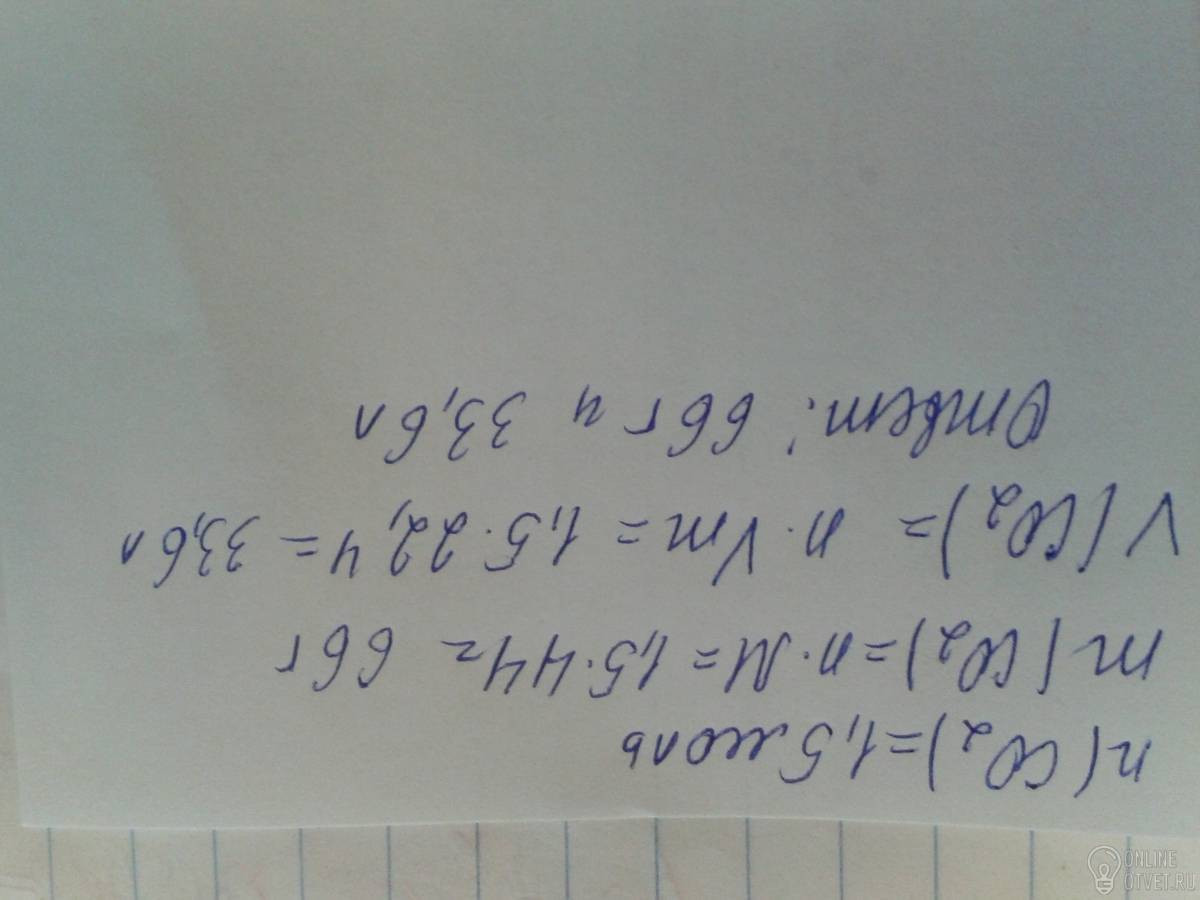 n(CO₂)=1,5моль
m(CO₂)=n·M=1,5·44= 66г
V(CO₂)= n·Vm=1,5·22,4=33,6л
Ответ: 66г и 33,6л
ONLINE
OTVET.RU